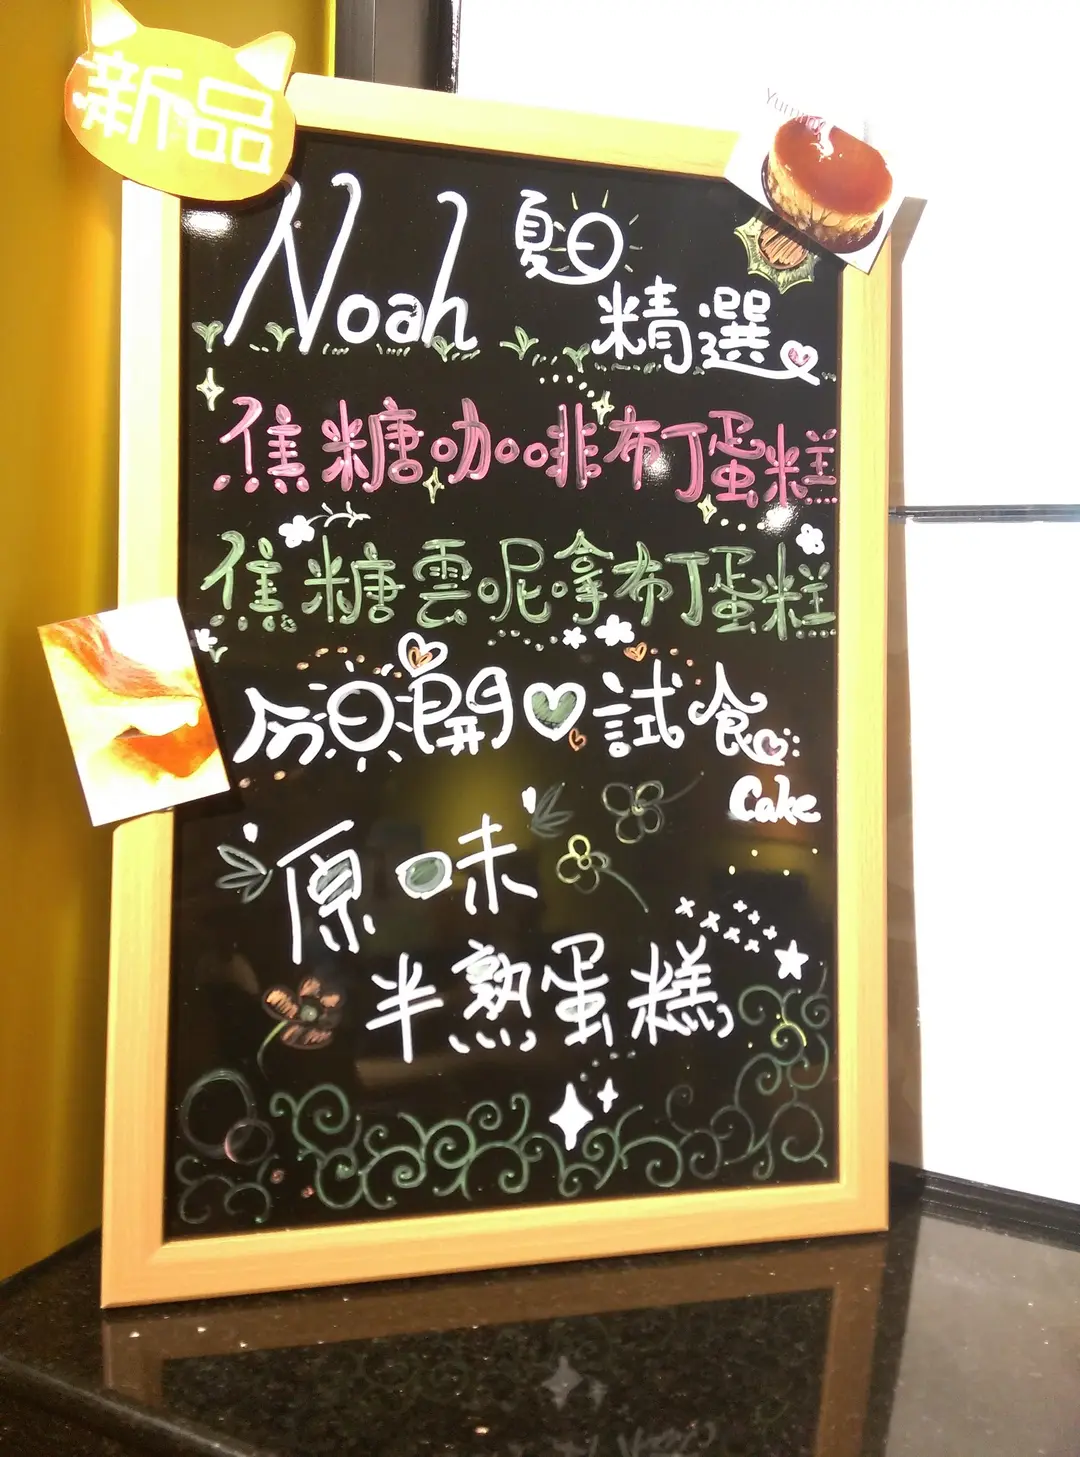 新品
Yummy
Noah 夏日
精選
焦糖咖啡布丁蛋糕
焦糖雲呢拿布丁蛋糕
今日開心試食
Cake
原味
半熟蛋糕